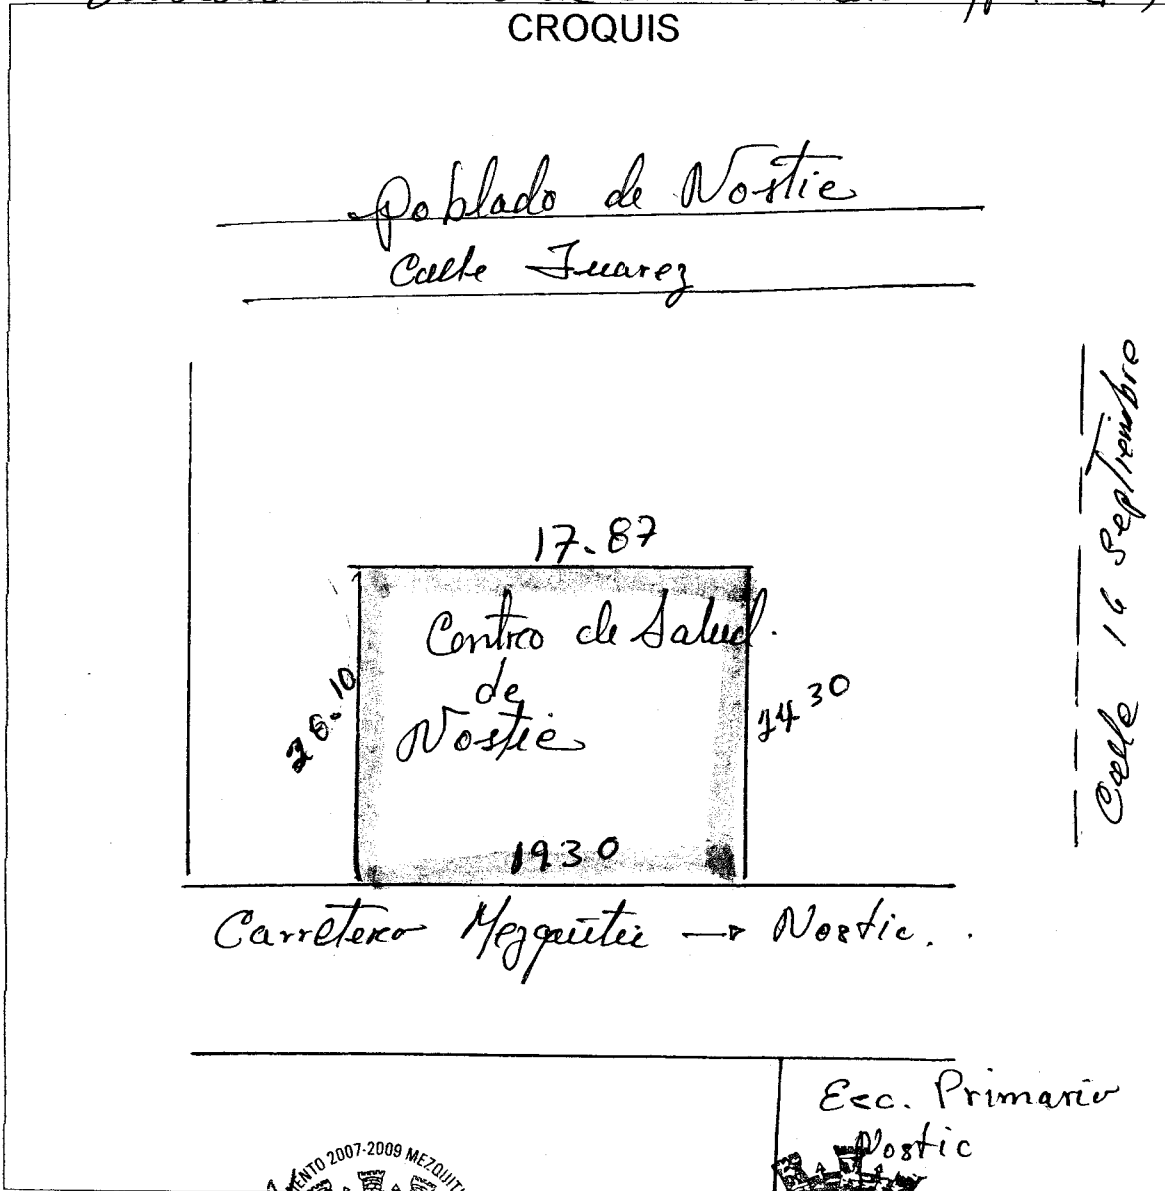 CROQUIS
Poblado de Nostic
Calle Juarez
Calle 16 Septiembre
17.87
Centro de Salud.
de
Nostic
26.10
24 30
19 30
Carretera Mezquitic → Nostic.
Esc. Primaria
Nostic
2007-2009